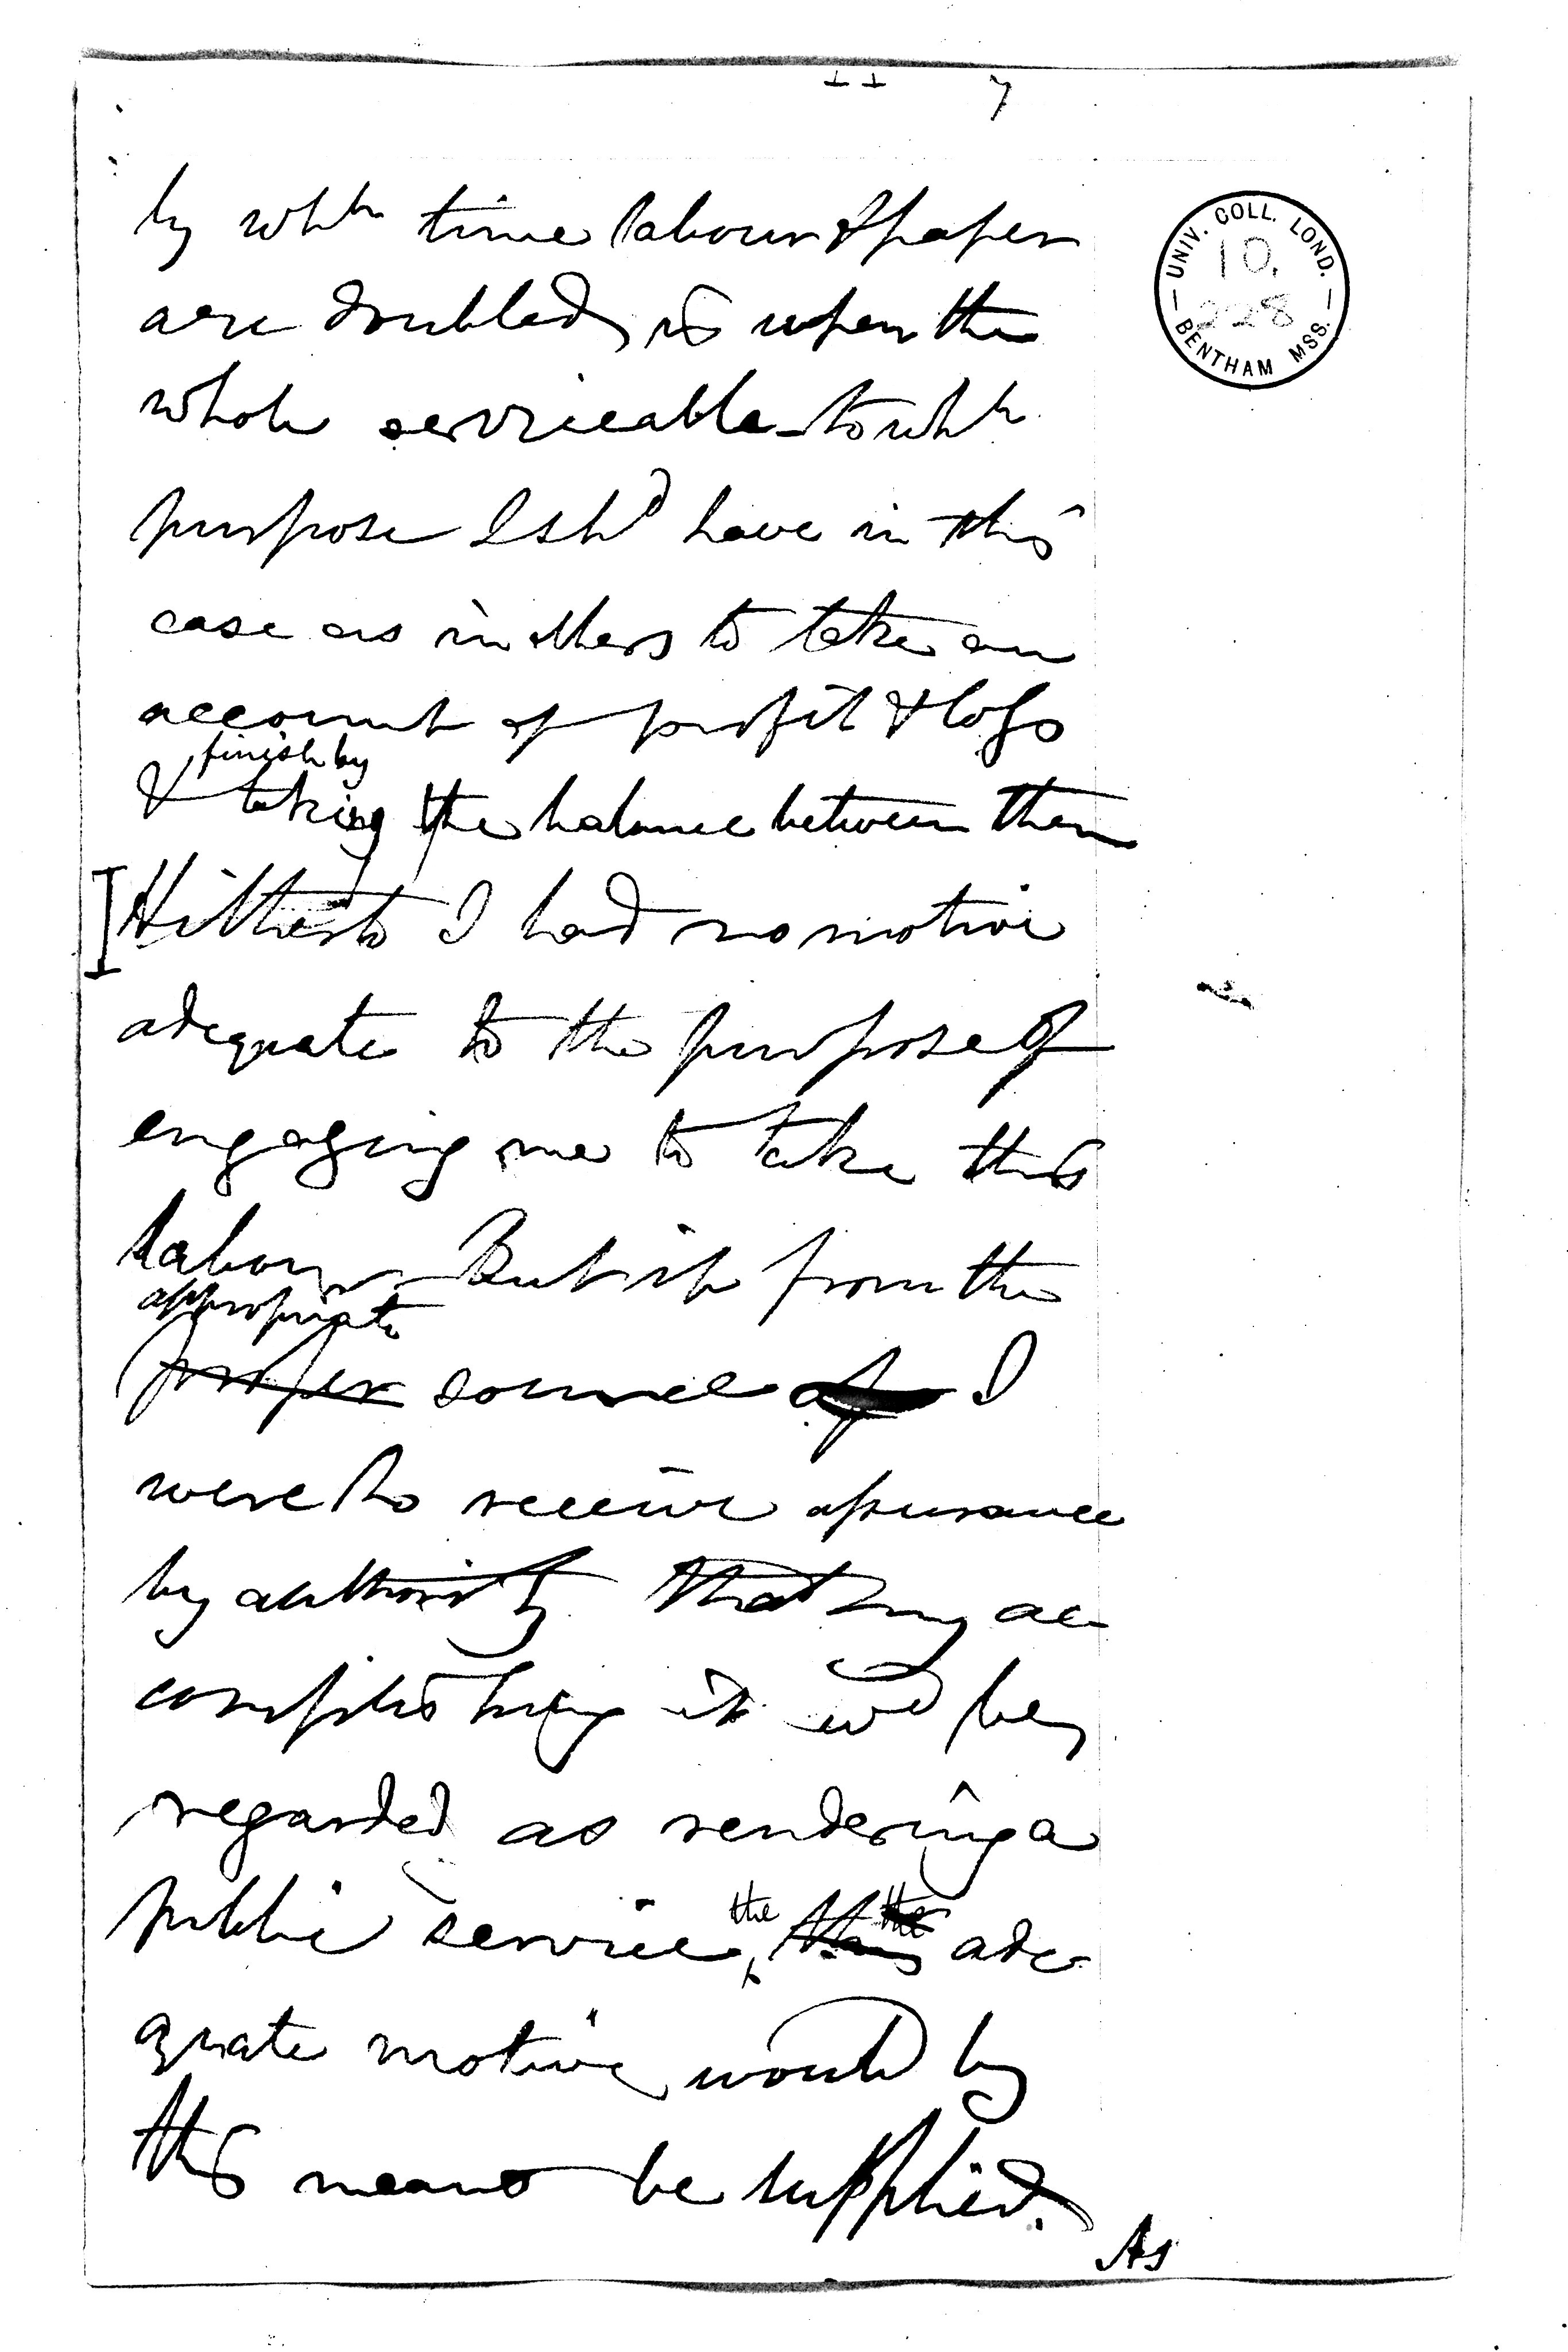 II 7
by wh^ch time labour & paper
are doubled, is upon the
whole serviceable to wh^ch
purpose I sh^d have in this
case as in others to take an
account of profit & loss
finish by
& taking the balance between them
Hitherto I had no motive
adequate to the purpose of
engaging me to take this
labour. But if from the
appropriate
proper source of I
were to receive assurance
by authority that my ac-
complishing it w^d be
regarded as rendering a
public service, the the ade
quate motive would by
this means be supplied.
As
UNIV. COLL. LOND.
10.
228
BENTHAM MSS.